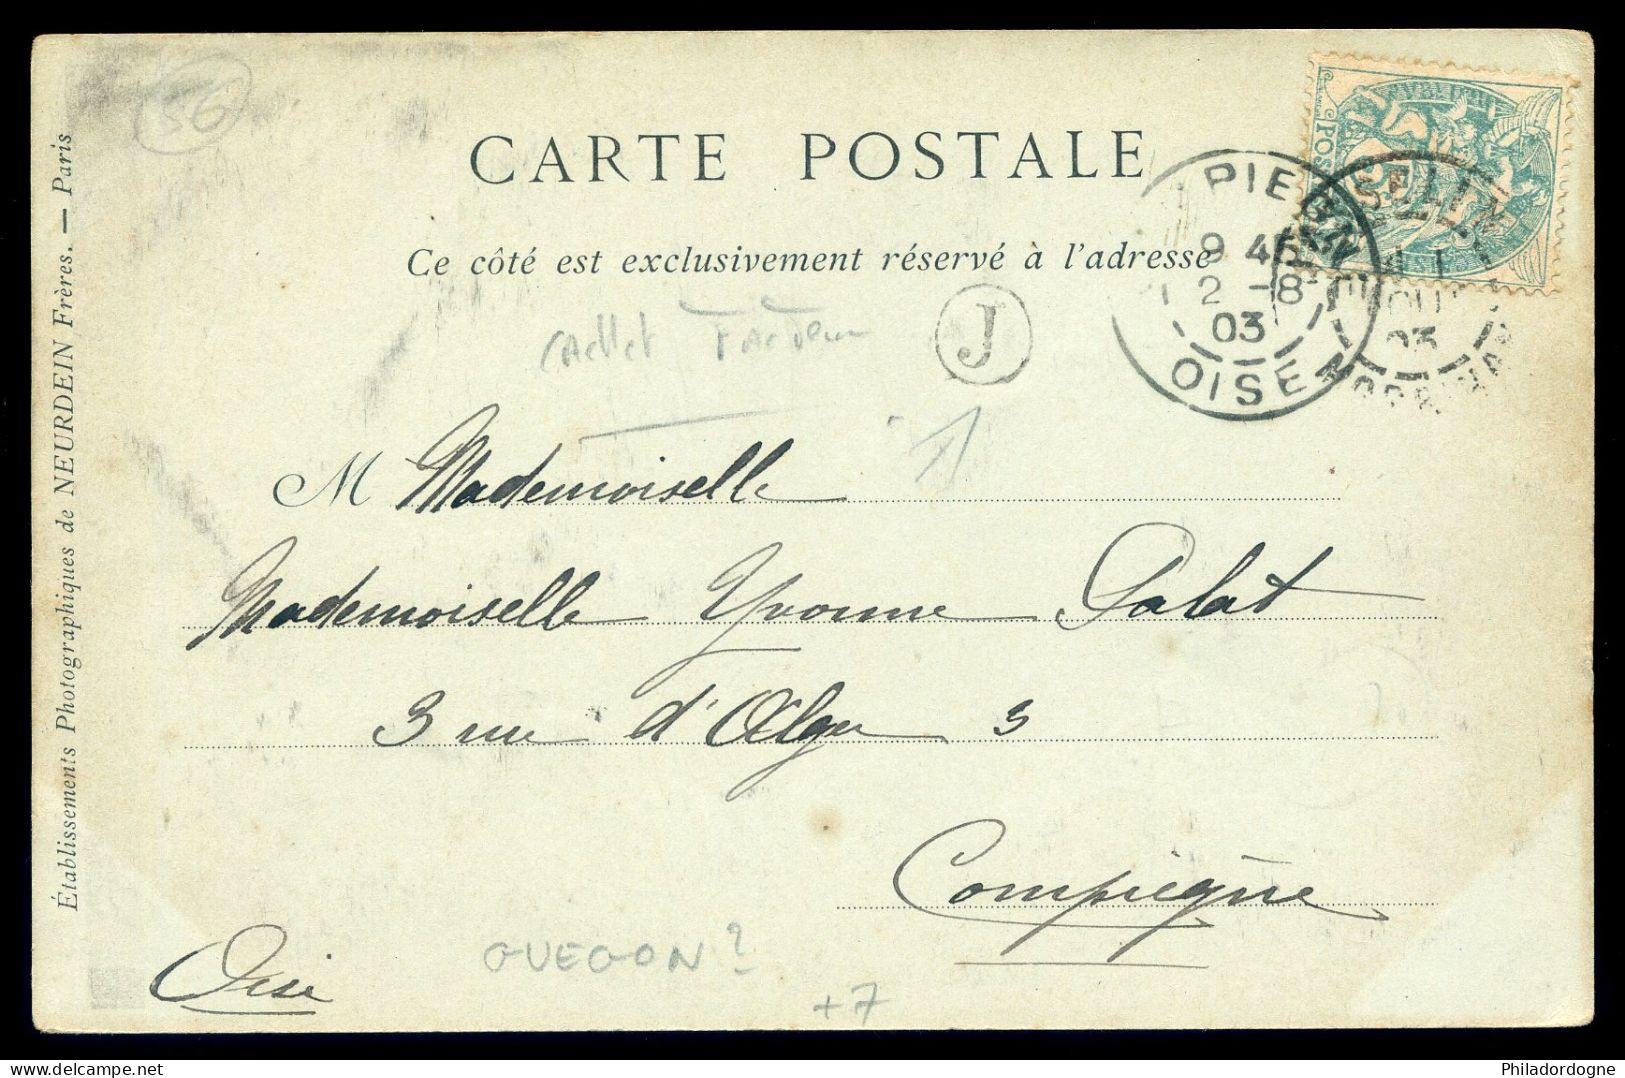 56
CARTE POSTALE
Ce côté est exclusivement réservé à l'adresse
PIEGN
9 45
2 -8
03
OISE
POS
03
J
cachet Facteur
1
M Mademoiselle
Mademoiselle Yvonne Palat
3 rue d'Alger 3
Compiègne
Oise
GUEGON?
+7
Établissements Photographiques de NEURDEIN Frères. — Paris
Philadordogne